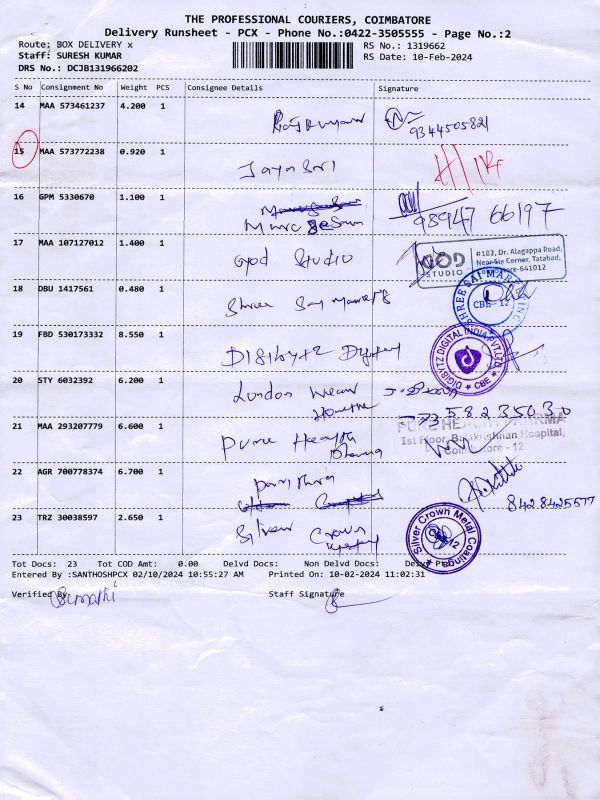 THE PROFESSIONAL COURIERS, COIMBATORE
Delivery Runsheet - PCX - Phone No.:0422-3505555 - Page No.:2
Route: BOX DELIVERY x
RS No.: 1319662
Staff: SURESH KUMAR
RS Date: 10-Feb-2024
DRS No.: DCJB131966202
S No Consignment No Weight PCS Consignee Details Signature
14 MAA 573461237 4.200 1
9344505821
15 MAA 573772238 0.920 1 Jaya Sri
16 GPM 5330670 1.100 1
98947 66197
17 MAA 107127012 1.400 1 God Studio
GOD STUDIO
#183, Dr. Alagappa Road,
Near Six Corner, Tatabad,
Coimbatore-641012
18 DBU 1417561 0.480 1 Shree Sai
SHREE SAI MARKETING
CBE - 12
19 FBD 530173332 8.550 1
DIGIBYTZ DIGITAL INDIA PVT.LTD
CBE
20 STY 6032392 6.200 1 London Wear
7358235030
21 MAA 293207779 6.600 1 Pure Health Pharma
PURE HEALTH PHARMA
1st Floor, Balakrishnan Hospital,
Coimbatore - 12
22 AGR 700778374 6.700 1
8428425577
23 TRZ 30038597 2.650 1 Silver Crown
Silver Crown Metal Coatings
Tot Docs: 23 Tot COD Amt: 0.00 Delvd Docs: Non Delvd Docs: Delvd P
Entered By :SANTHOSHPCX 02/10/2024 10:55:27 AM Printed On: 10-02-2024 11:02:31
Verified By: Staff Signature